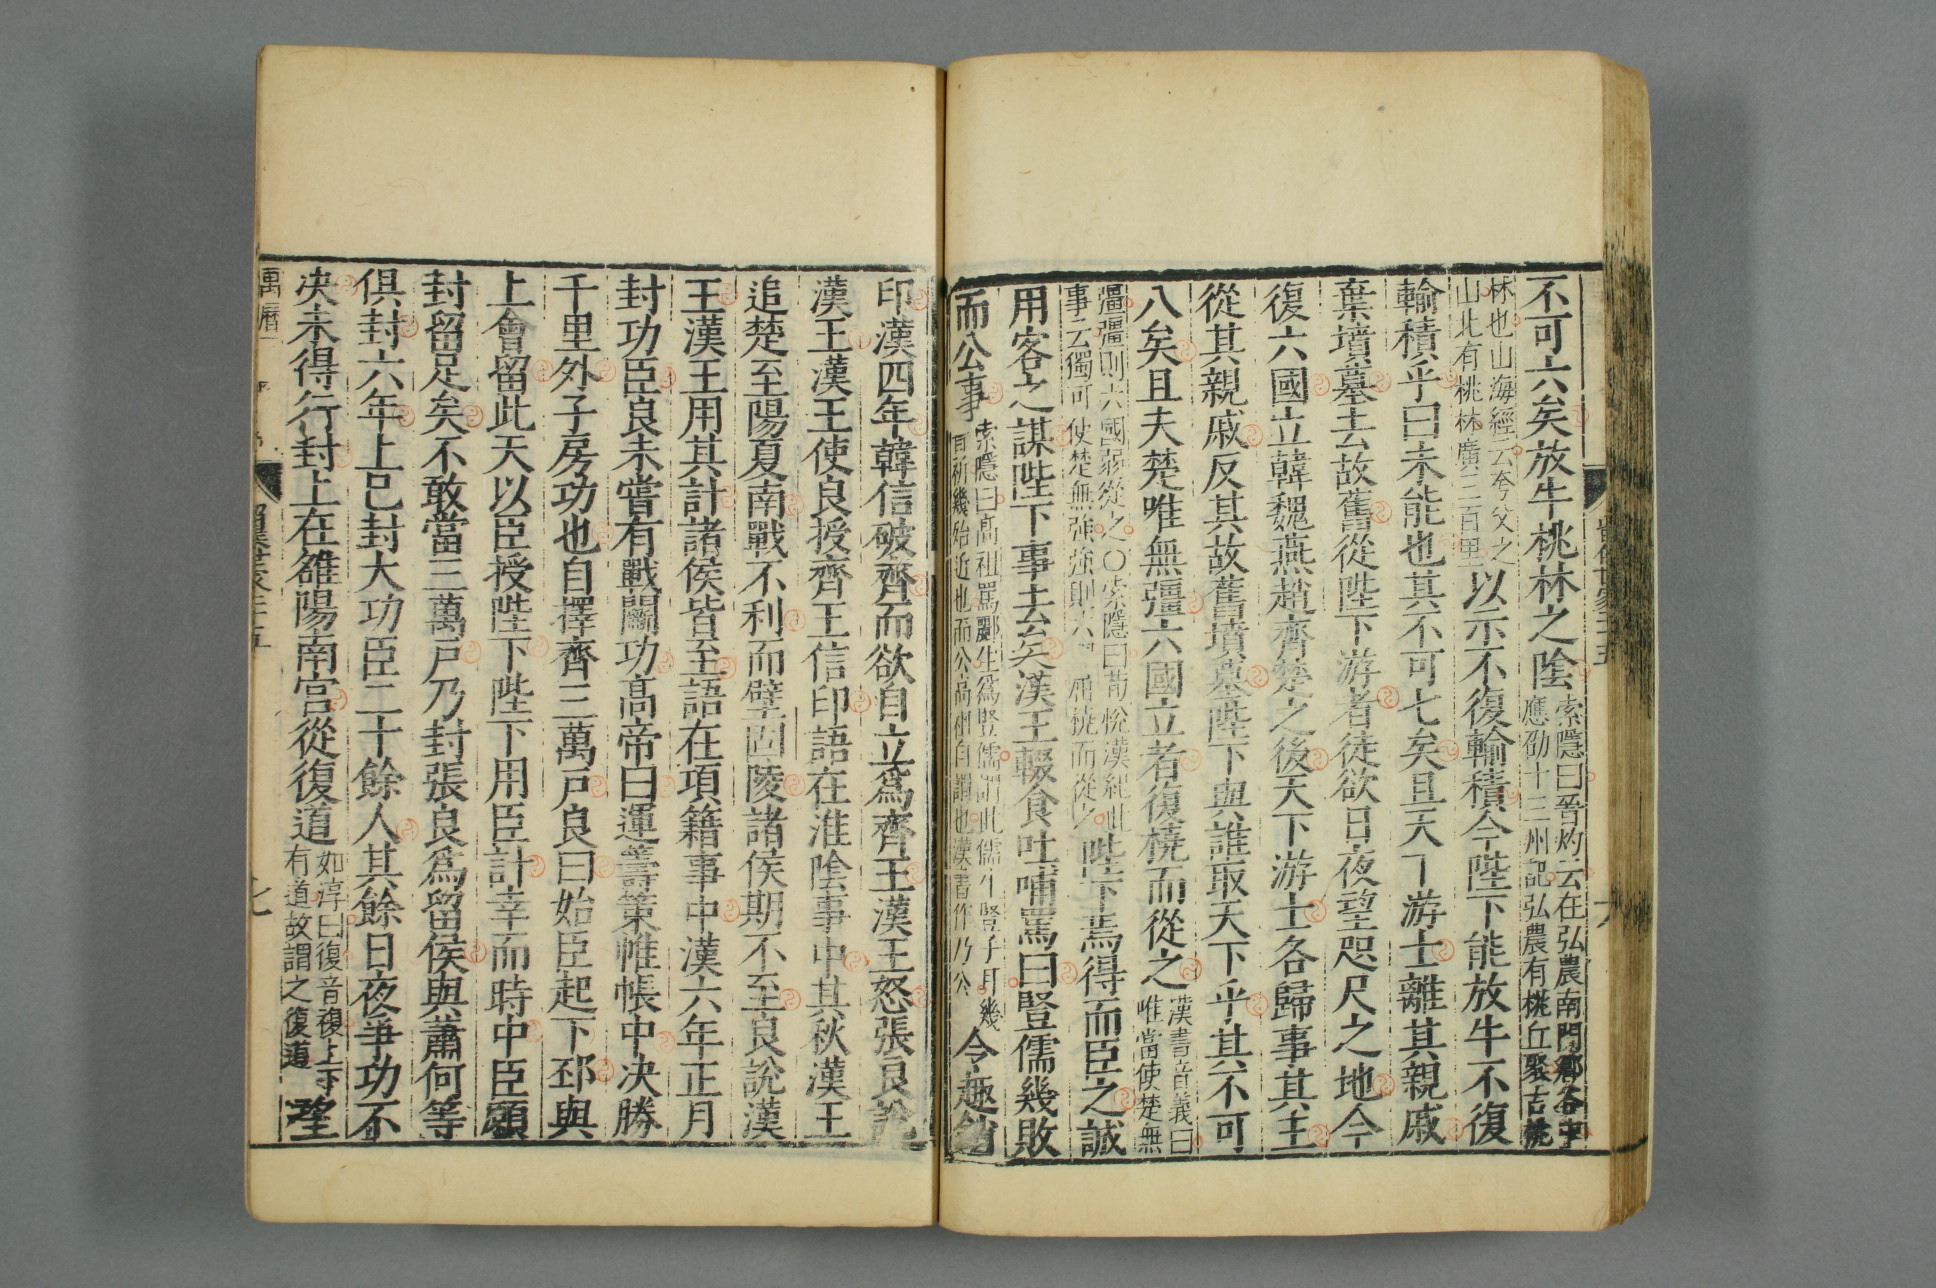 不可六矣放牛桃林之陰索隱曰晉灼云在弘農南閿鄉谷中應劭十三州記弘農有桃丘聚古桃
林也山海經云夸父之山北有桃林廣三百里以示不復輸積今陛下能放牛不復
輸積乎曰未能也其不可七矣且天下游士離其親戚
棄墳墓去故舊從陛下游者徒欲日夜望咫尺之地今
復六國立韓魏燕趙齊楚之後天下游士各歸事其主
從其親戚反其故舊墳墓陛下與誰取天下乎其不可
八矣且夫楚唯無彊六國立者復橈而從之漢書音義曰唯當使楚無
彊彊則六國弱從之〇索隱曰荀悅漢紀此事云獨可使楚無強強則六國屈橈而從之陛下焉得而臣之誠
用客之謀陛下事去矣漢王輟食吐哺罵曰豎儒幾敗
而公事索隱曰高祖罵酈生為豎儒謂此儒生豎子耳幾音祈幾殆近也而公高祖自謂也漢書作乃公令趣銷
留侯世家二十五
六
印漢四年韓信破齊而欲自立爲齊王漢王怒張良說
漢王漢王使良授齊王信印語在淮陰事中其秋漢王
追楚至陽夏南戰不利而壁固陵諸侯期不至良說漢
王漢王用其計諸侯皆至語在項籍事中漢六年正月
封功臣良未嘗有戰鬭功高帝曰運籌策帷帳中決勝
千里外子房功也自擇齊三萬戶良曰始臣起下邳與
上會留此天以臣授陛下陛下用臣計幸而時中臣願
封留足矣不敢當三萬戶乃封張良爲留侯與蕭何等
俱封六年上已封大功臣二十餘人其餘日夜爭功不
決未得行封上在雒陽南宮從復道如淳曰復音複上下有道故謂之復道望
萬曆
七